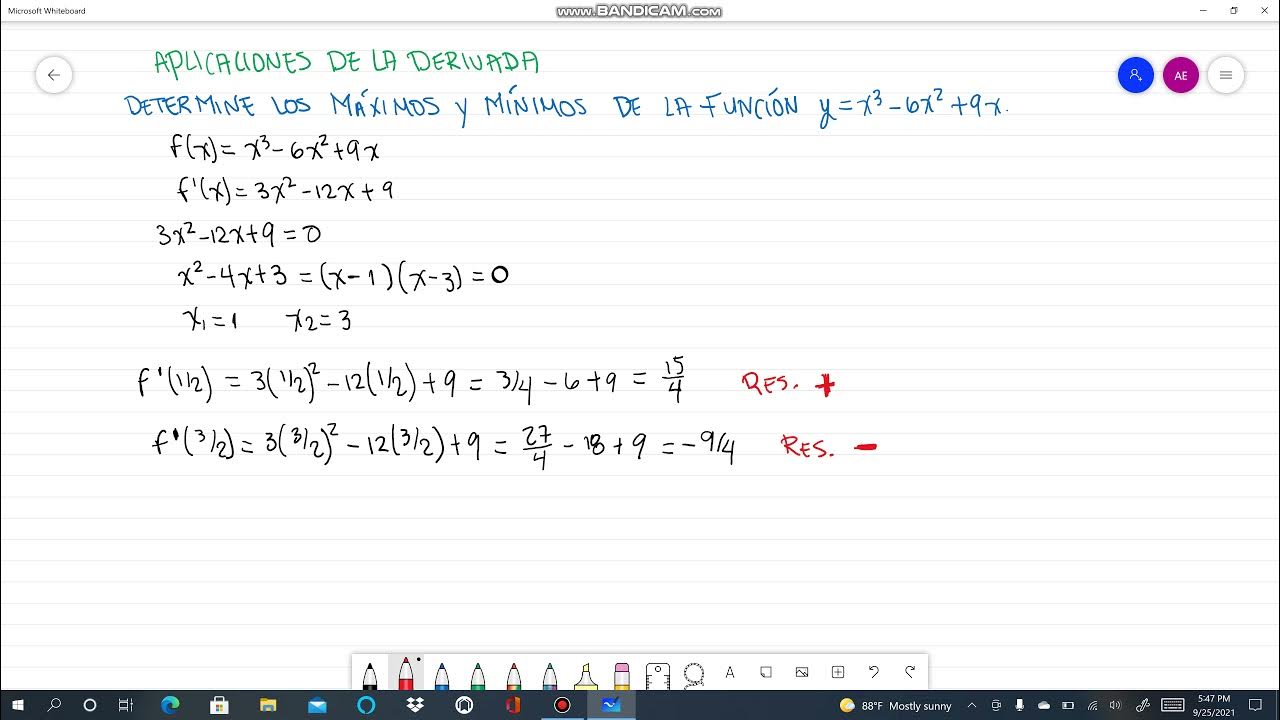 Microsoft Whiteboard
www.BANDICAM.com
APLICACIONES DE LA DERIVADA
AE
DETERMINE LOS MÁXIMOS Y MÍNIMOS DE LA FUNCIÓN y = x³ - 6x² + 9x.
f(x) = x³ - 6x² + 9x
f'(x) = 3x² - 12x + 9
3x² - 12x + 9 = 0
x² - 4x + 3 = (x - 1)(x - 3) = 0
x₁ = 1 x₂ = 3
f'(1/2) = 3(1/2)² - 12(1/2) + 9 = 3/4 - 6 + 9 = 15/4 RES. +
f'(3/2) = 3(3/2)² - 12(3/2) + 9 = 27/4 - 18 + 9 = -9/4 RES. -
88°F Mostly sunny
5:47 PM
9/25/2021